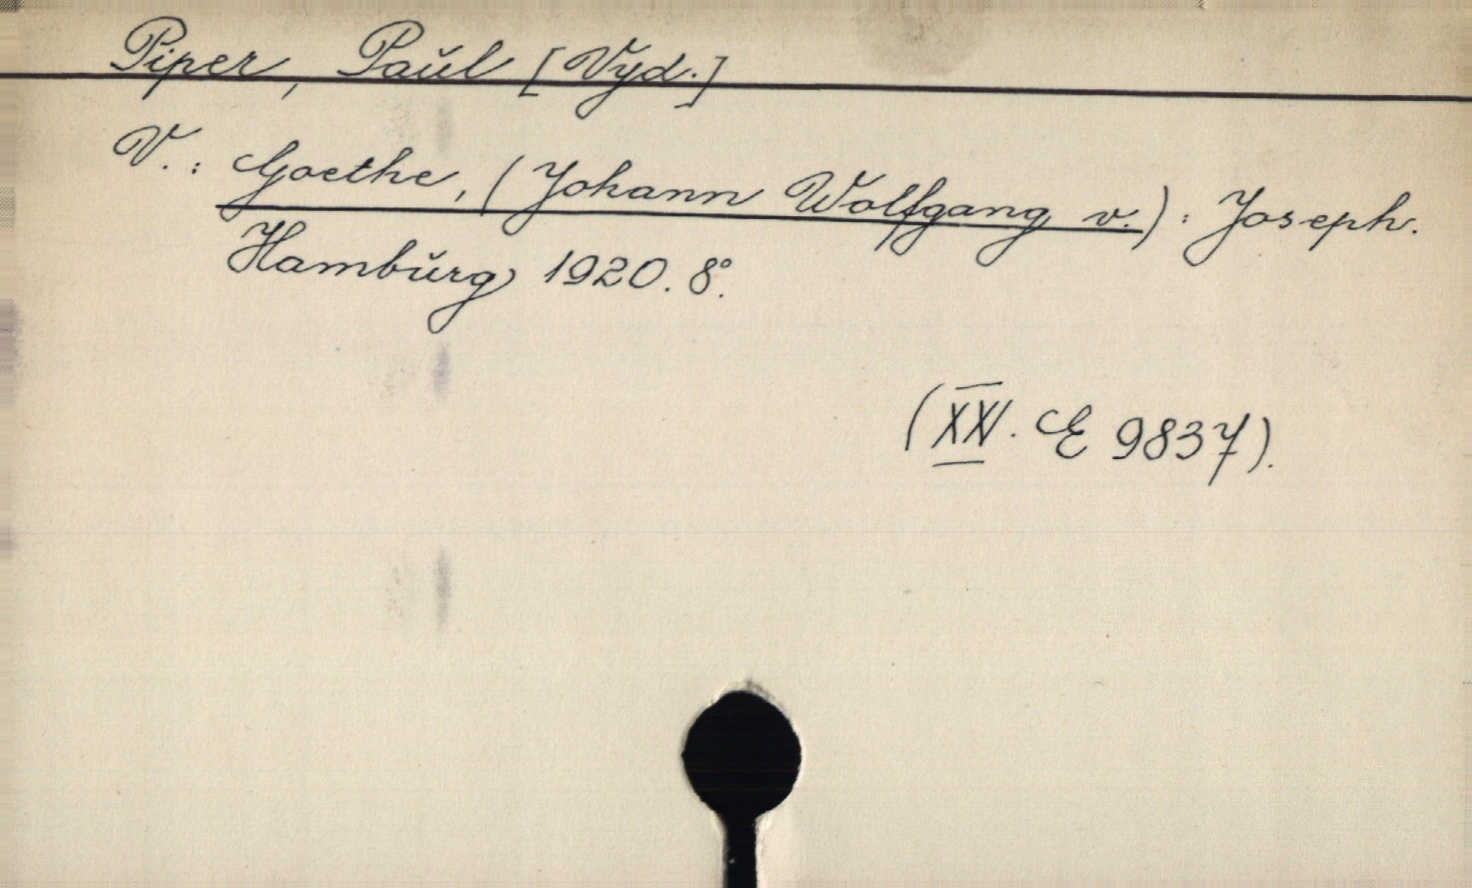 Piper, Paul [Vyd.]
V.: Goethe, (Johann Wolfgang v.): Joseph.
Hamburg 1920. 8°.
(XXV. E 9837).